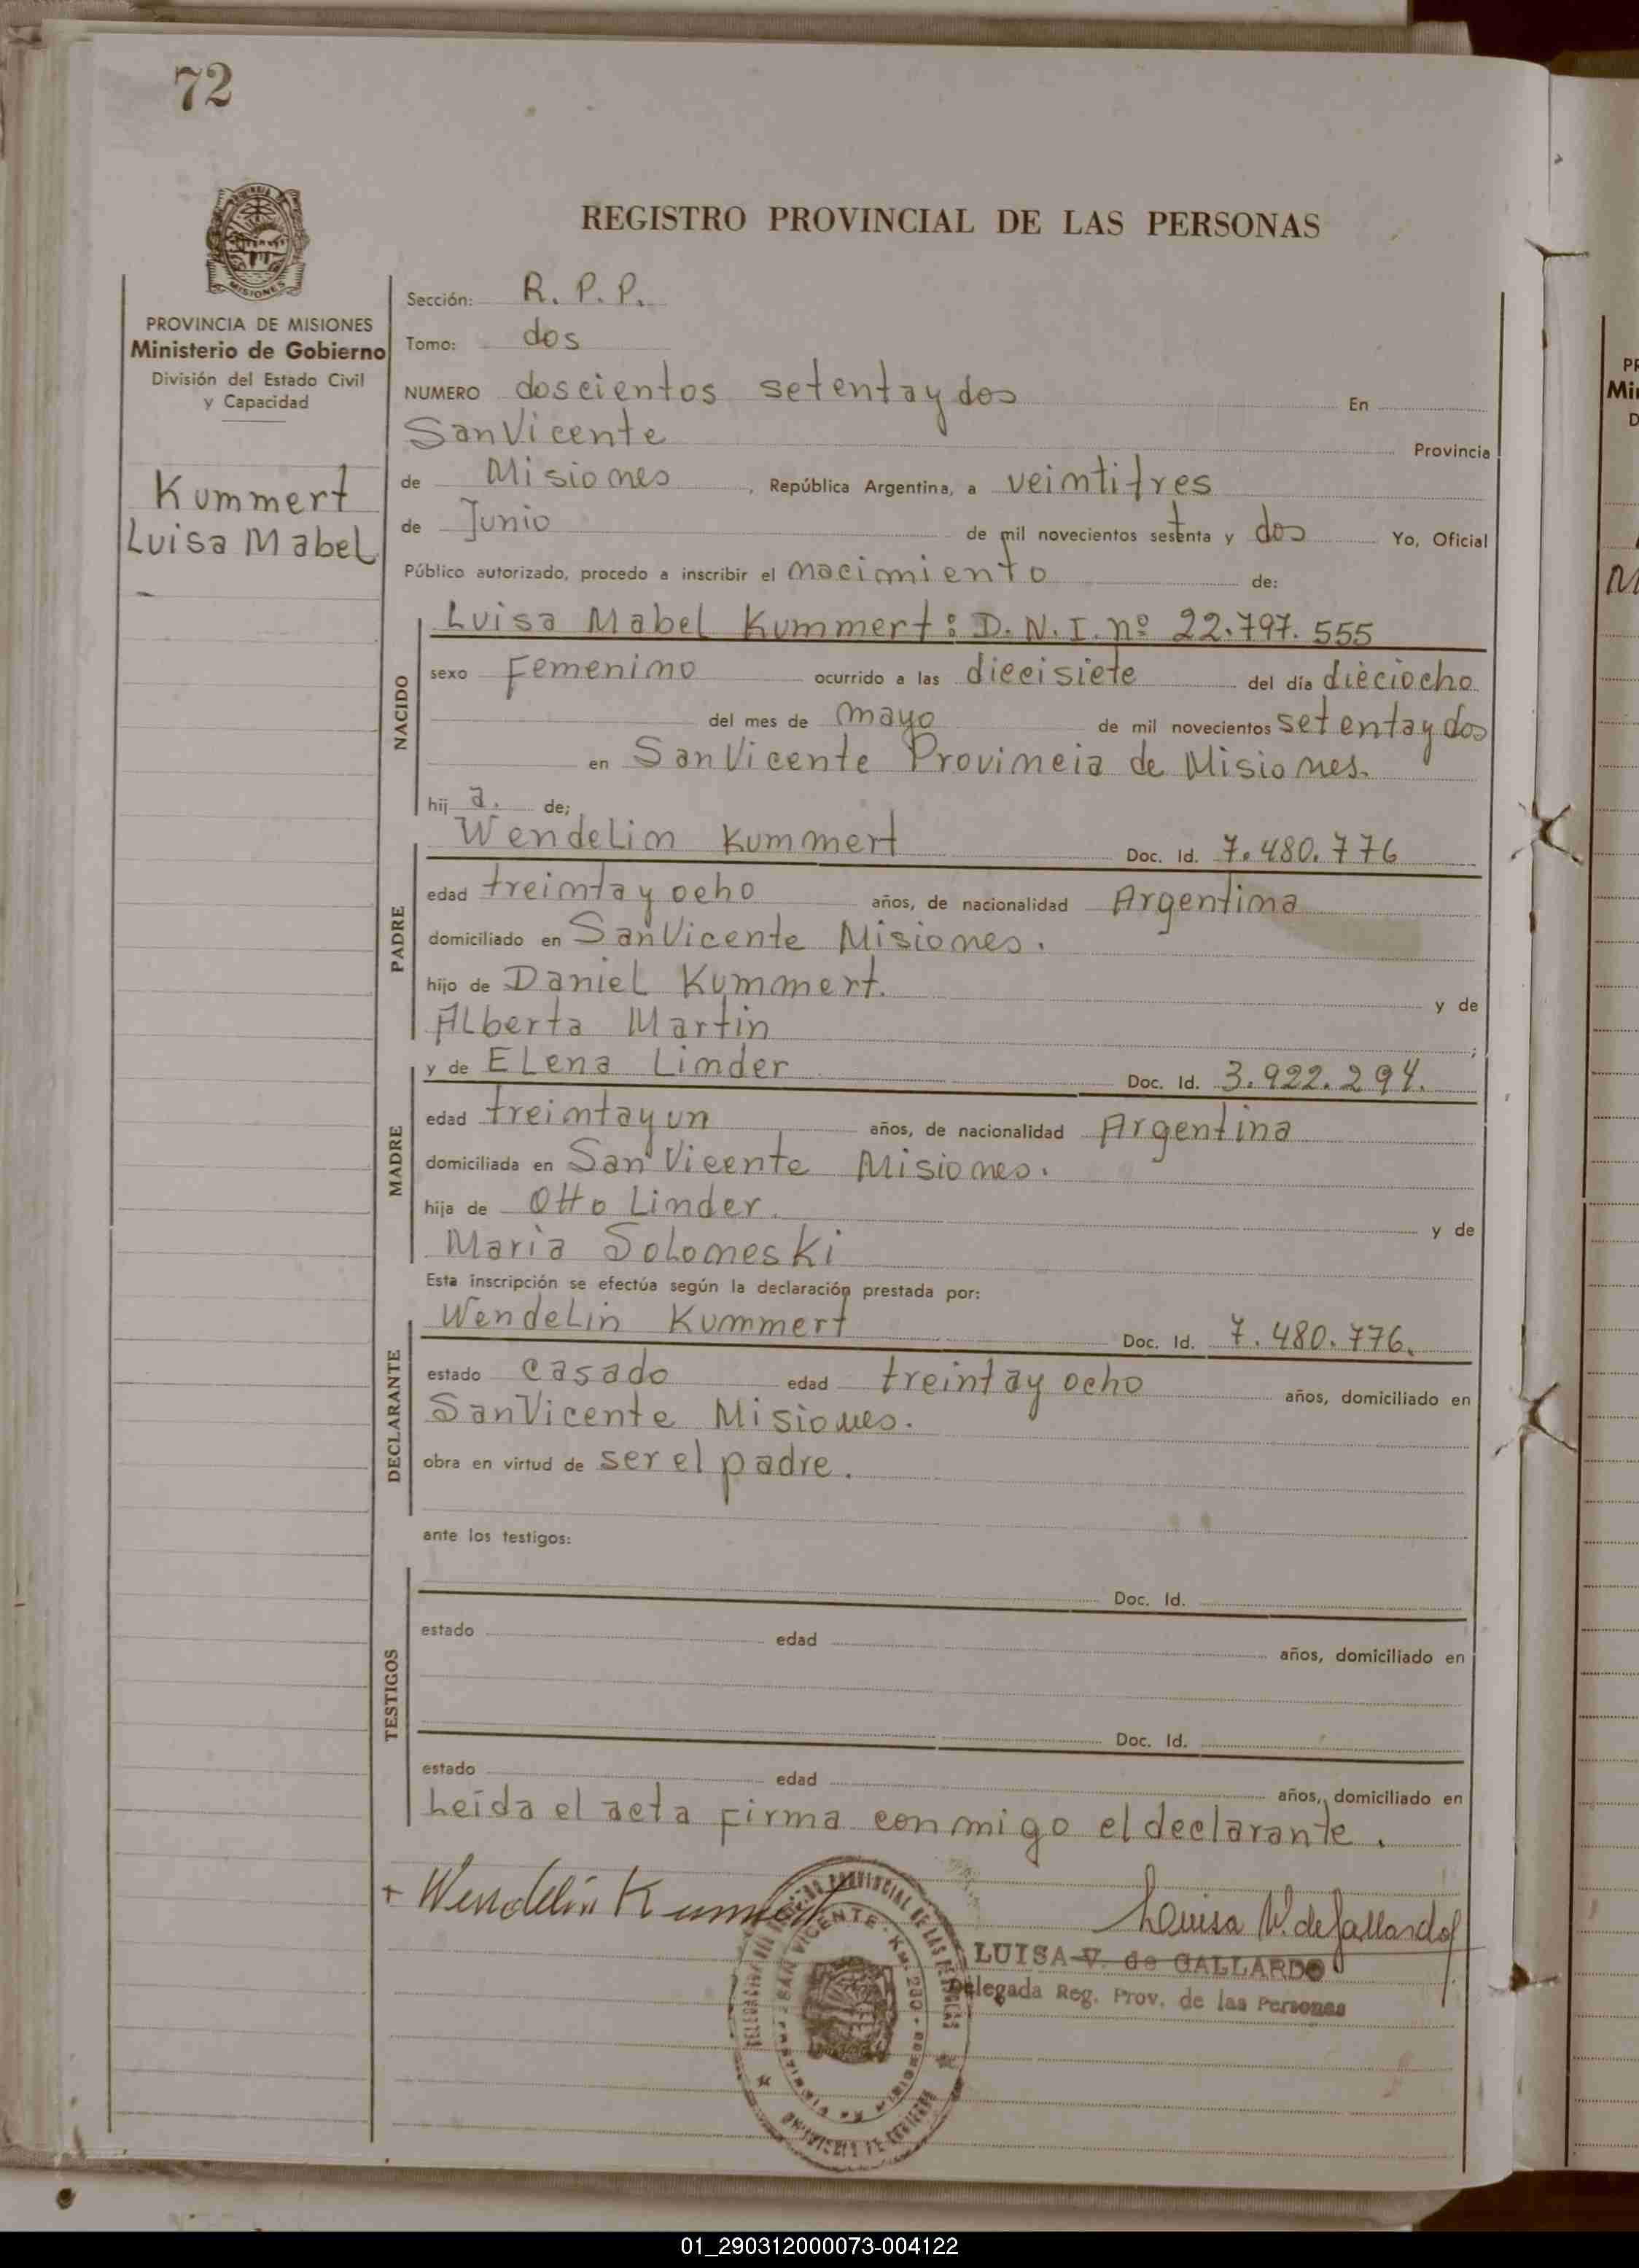 72
MISIONES
PROVINCIA DE MISIONES
Ministerio de Gobierno
División del Estado Civil
y Capacidad
Kummert
Luisa Mabel
REGISTRO PROVINCIAL DE LAS PERSONAS
Sección: R. P. P.
Tomo: dos
NUMERO doscientos setentaydos En
San Vicente Provincia
de Misiones, República Argentina, a veintitres
de Junio de mil novecientos setenta y dos Yo, Oficial
Público autorizado, procedo a inscribir el nacimiento de:
NACIDO
Luisa Mabel Kummert: D.N.I. nº 22.797.555
sexo Femenino ocurrido a las diecisiete del día dieciocho
del mes de mayo de mil novecientos setentaydos
en San Vicente Provincia de Misiones.
hij a. de;
PADRE
Wendelin Kummert Doc. Id. 7.480.776
edad treintayocho años, de nacionalidad Argentina
domiciliado en San Vicente Misiones.
hijo de Daniel Kummert. y de
Alberta Martin ;
MADRE
y de Elena Linder Doc. Id. 3.922.294.
edad treintayun años, de nacionalidad Argentina
domiciliada en San Vicente Misiones.
hija de Otto Linder. y de
Maria Solomeski
Esta inscripción se efectúa según la declaración prestada por:
DECLARANTE
Wendelin Kummert Doc. Id. 7.480.776.
estado casado edad treintayocho años, domiciliado en
San Vicente Misiones.
obra en virtud de ser el padre.
ante los testigos:
TESTIGOS
Doc. Id.
estado edad años, domiciliado en
Doc. Id.
estado edad años, domiciliado en
Leída el acta firma conmigo el declarante.
+ Wendelin Kummert
Louisa V. de Gallardo
LUISA V. de GALLARDO
Delegada Reg. Prov. de las Personas
PROVINCIAL DE LAS
SAN VICENTE - Km. 280
01_290312000073-004122